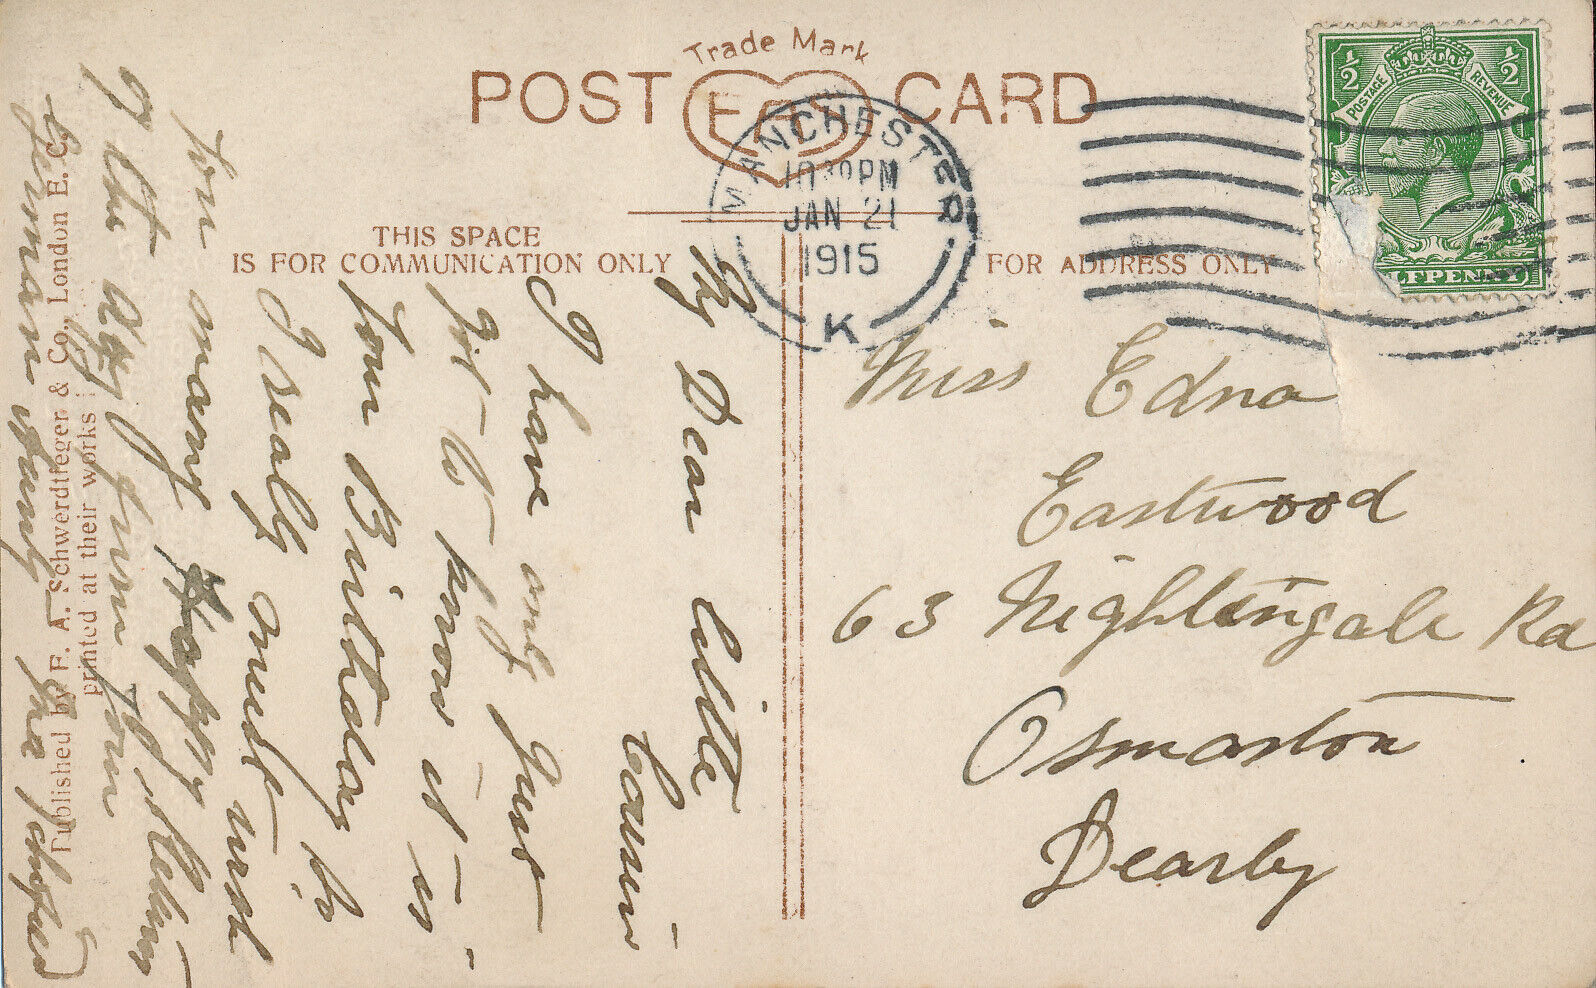 Trade Mark
POST CARD
FAS
MANCHESTER
10 30 PM
JAN 21
1915
K
½ ½
POSTAGE REVENUE
LFPENNY
THIS SPACE
IS FOR COMMUNICATION ONLY
FOR ADDRESS ONLY
Miss Edna
Eastwood
63 Nightingale Rd
Osmaston
Dearby
My Dear little
Cousin
I have only just
got to know it is
your Birthday so
I realy must wish
you many Happy Return
of the day from your
German
Published by F. A. Schwerdtfeger & Co., London E.C.
printed at their works